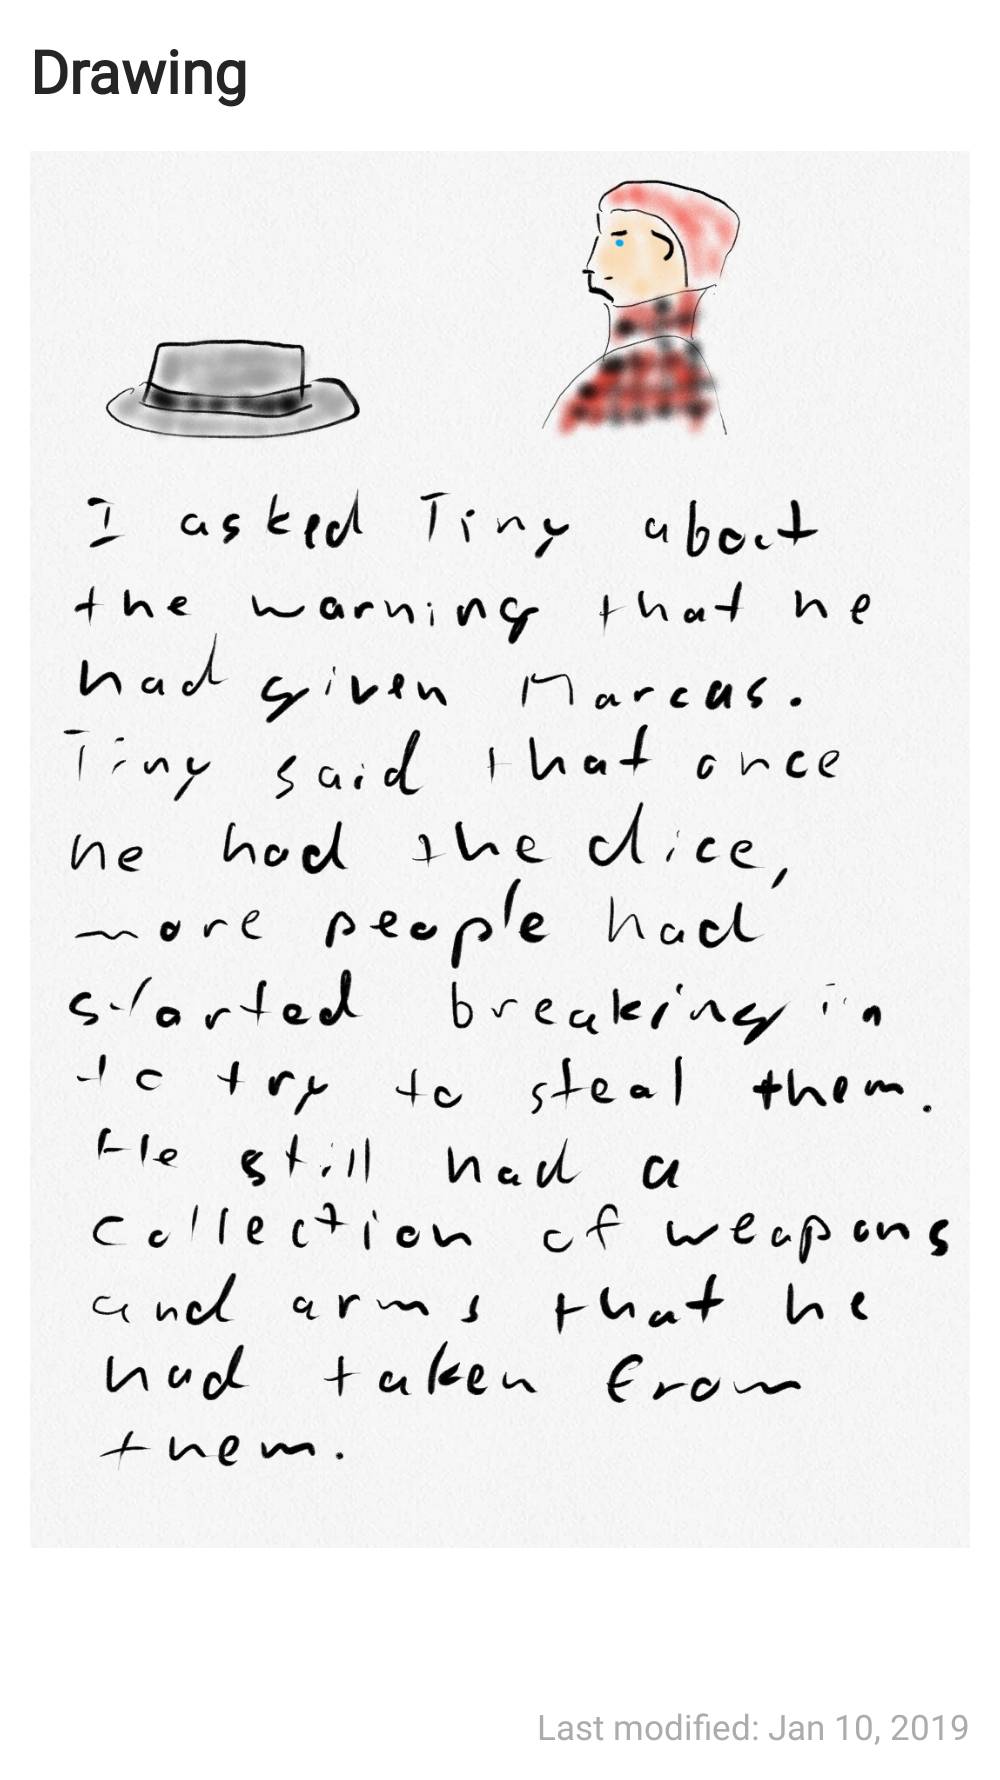 Drawing
I asked Tiny about
the warning that he
had given Marcus.
Tiny said that once
he had the dice,
more people had
started breaking in
to try to steal them.
He still had a
collection of weapons
and arms that he
had taken from
them.
Last modified: Jan 10, 2019